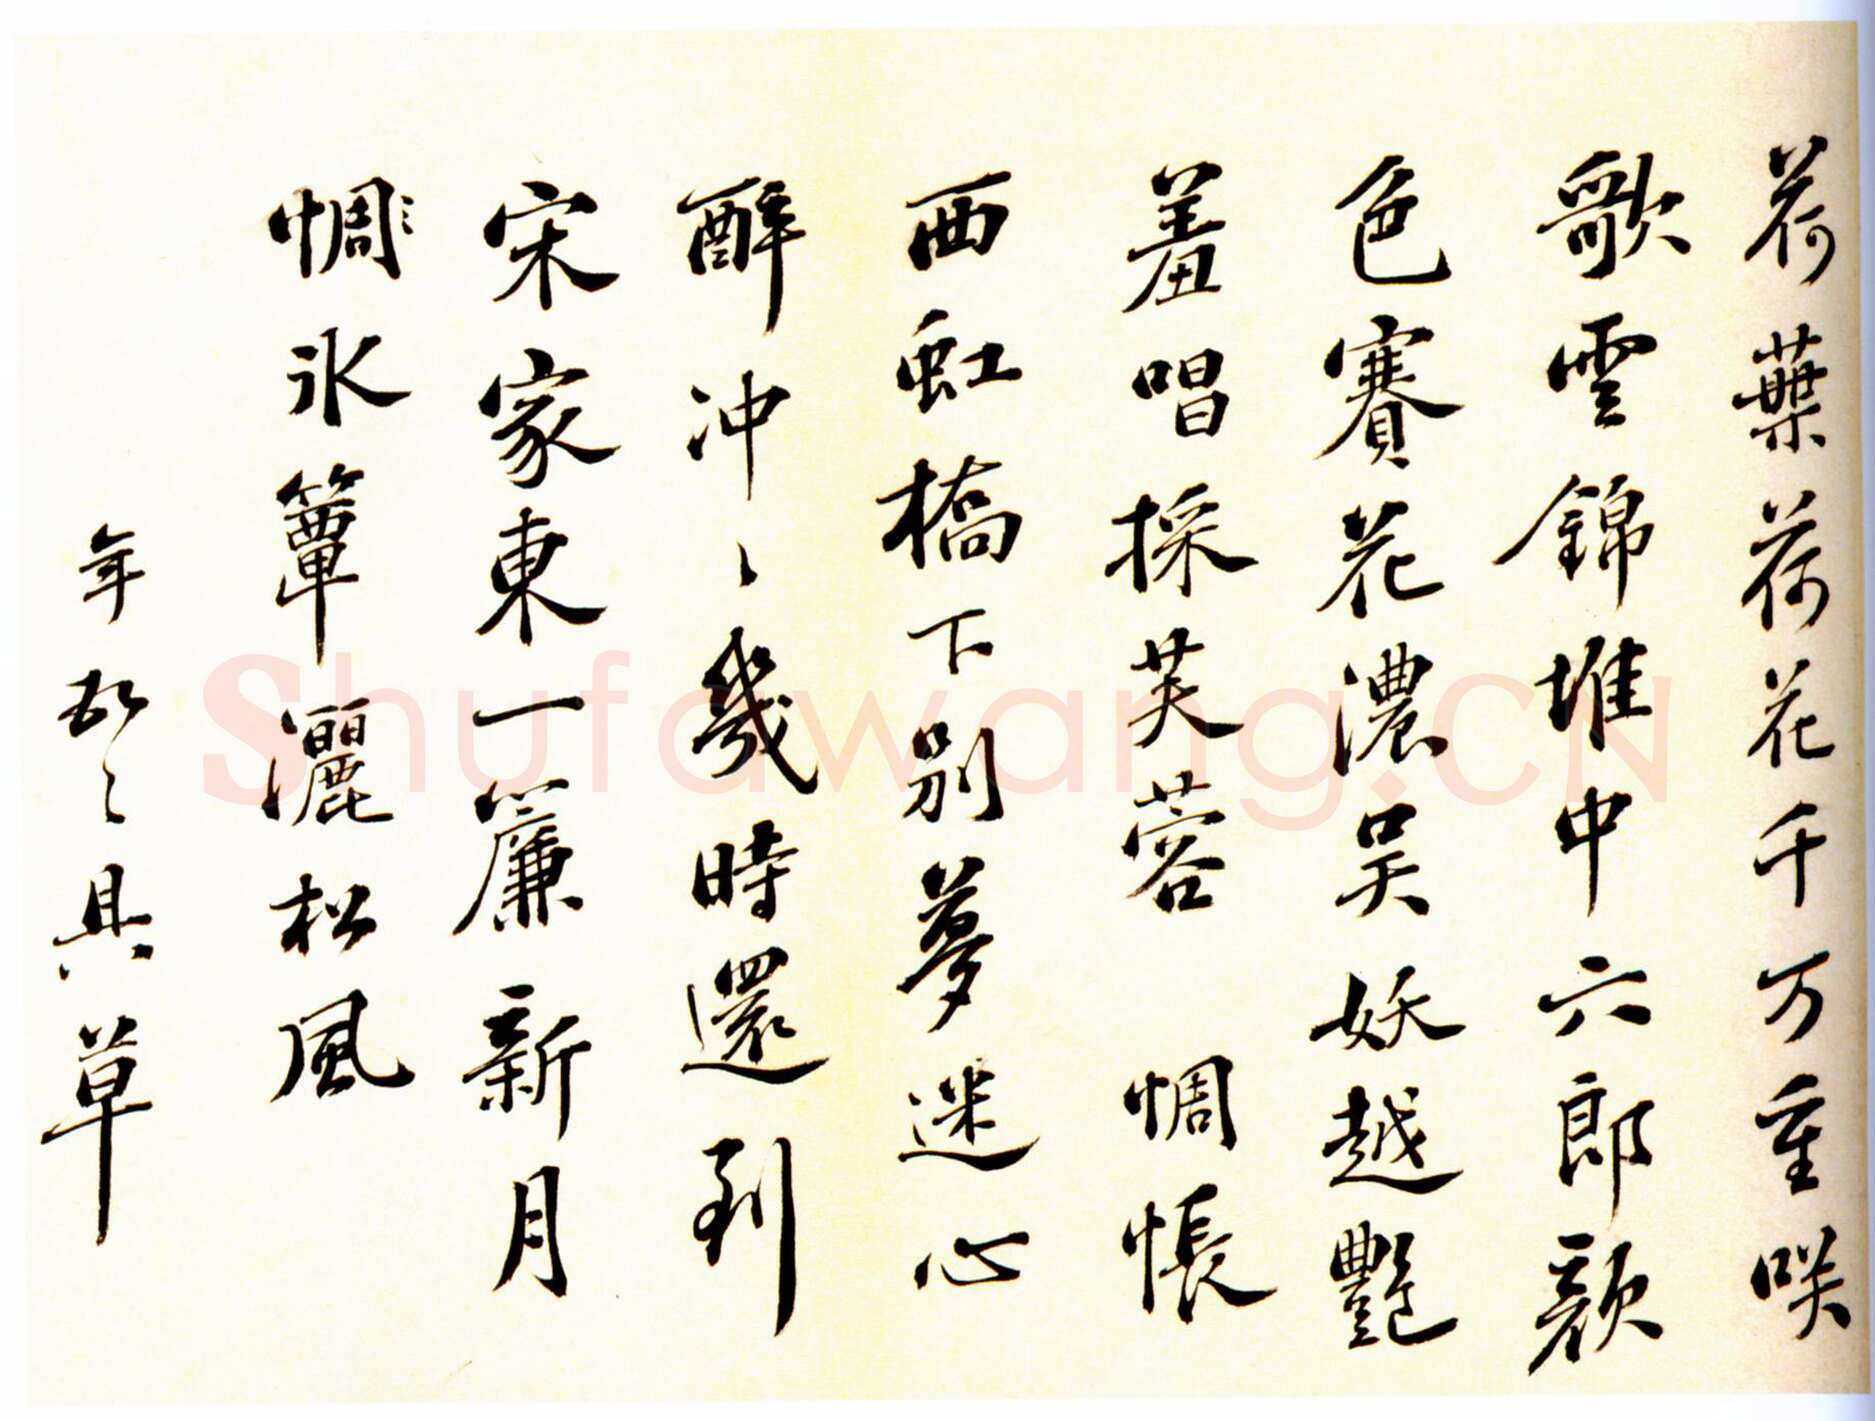 荷葉荷花千万重咲
歌雲錦堆中六郎顏
色賽花濃吴妖越艷
羞唱採芙蓉 惆悵
西虹橋下別夢迷心
醉冲〻幾時還到
宋家東一簾新月
惆冰簟灑松風
年弘〻具草
Shufawang.CN